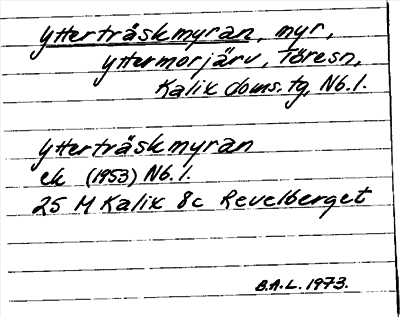 Ytterträskmyran, myr,
Yttermorjärv, Töresn,
Kalix doms.tg, Nb.l.
Ytterträskmyran
ek (1953) Nb.l.
25 M Kalix 8c Revelberget
B.A.L. 1973.